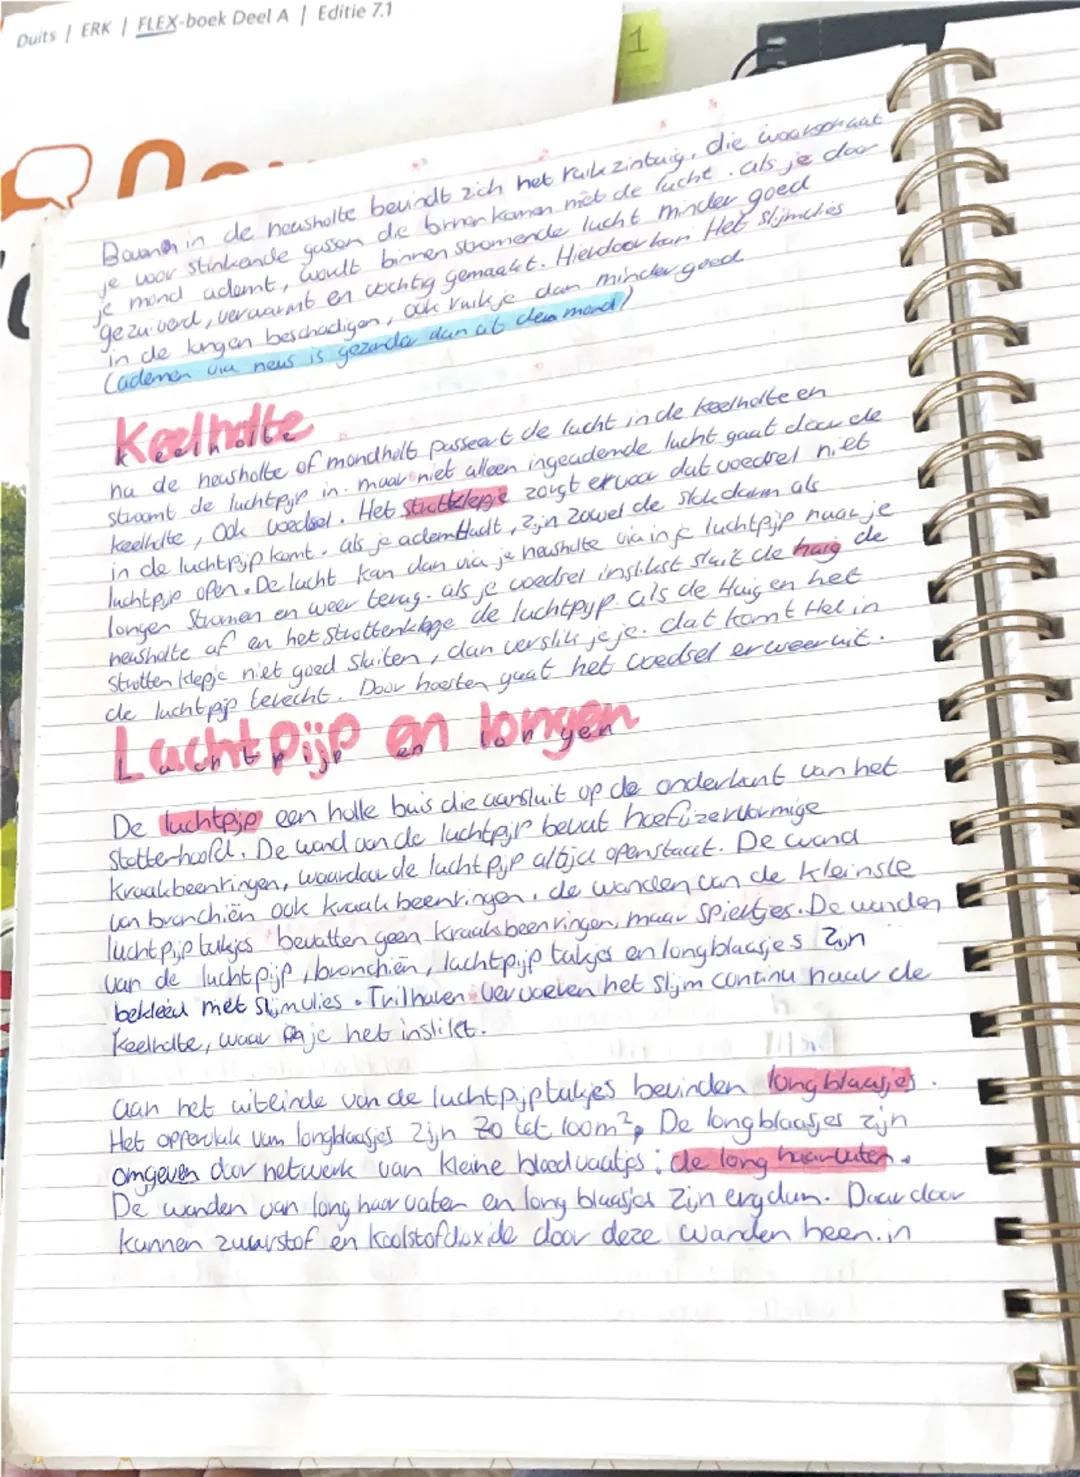 Duits | ERK | FLEX-boek Deel A | Editie 7.1
1
Boven in de neusholte bevindt zich het ruikzintuig, die waarschuwt
je voor stinkende gassen die binnen komen met de lucht. als je door
je mond ademt, wordt binnen stromende lucht minder goed
gezuiverd, verwarmt en vochtig gemaakt. Hierdoor kan Het slijmvlies
in de longen beschadigen, ook ruik je dan minder goed
(ademen via neus is gezonder dan uit den mond)
Keelholte
Keelholte
na de neusholte of mondholt passeert de lucht in de keelholte en
stroomt de luchtpijp in. maar niet alleen ingeademde lucht gaat door de
keelholte, ook voedsel. Het strotklepje zorgt ervoor dat voedsel niet
in de luchtpijp komt. als je ademhaalt, zijn zowel de slokdarm als
luchtpijp open. De lucht kan dan via je neusholte via in je luchtpijp naar je
longen stromen en weer terug. als je voedsel inslikt sluit de huig de
neusholte af en het strottenklepje de luchtpijp. als de Huig en het
strottenklepje niet goed sluiten, dan verslik je je. dat komt Het in
de luchtpijp terecht. Door hoesten gaat het voedsel er weer uit.
Luchtpijp en longen
Luchtpijp en longen
De luchtpijp een holle buis die aansluit op de onderkant van het
Stottenhoofd. De wand van de luchtpijp bevat hoefijzervormige
kraakbeenringen, waardoor de luchtpijp altijd openstaat. De wand
van bronchiën ook kraakbeenringen. de wanden van de kleinste
luchtpijptakjes bevatten geen kraaksbeenringen, maar spiertjes. De wanden
van de luchtpijp, bronchiën, luchtpijptakjes en longblaasjes zijn
bekleed met slijmvlies. Trilharen vervoeren het slijm continu naar de
keelholte, waar je het inslikt.
aan het uiteinde van de luchtpijptakjes bevinden longblaasjes.
Het oppervlak van longblaasjes zijn 70 tot 100m², De longblaasjes zijn
omgeven door netwerk van kleine bloedvaatjes: de longhaarvaten.
De wanden van longhaarvaten en longblaasjes zijn erg dun. Daardoor
kunnen zuurstof en koolstofdioxide door deze wanden heen. in